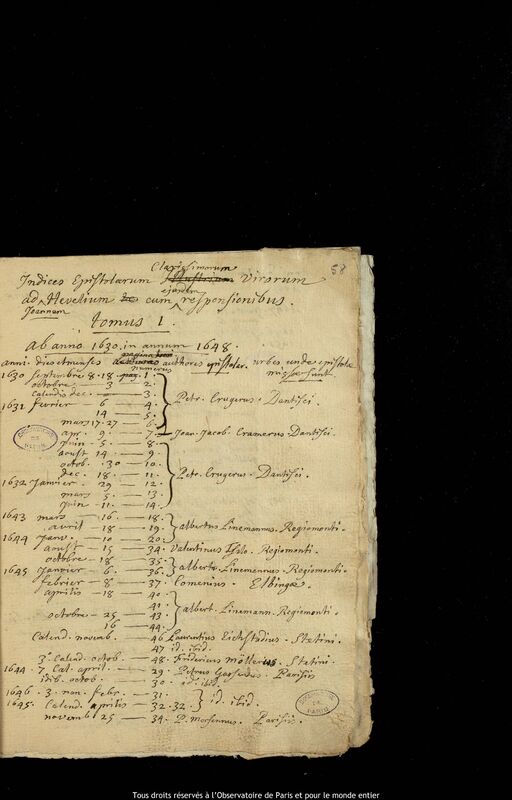 58
Clarissimorum
Indices Epistolarum Virorum
ad Hevelium cum responsionibus.
Joannem ejusdem
tomus I.
ab anno 1630. in annum 1648.
anni. dies et menses numerus authores epistolar. urbes unde epistolæ
missæ sunt
1630 septembre 8.18 pag. 1.
octobre — 3 — 2.
Calendis dec. — 3.
1631 fevrier — 6 — 4. Petr. Crugerus. Dantisci.
14 — 5.
mars 17.27 — 6.
apr. 9 — 7. Joan. Jacob. Cramerus Dantisci.
juin . 5 — 8.
aoust 14 — 9.
octob. 30 — 10.
dec. 18 — 11. Petr. Crugerus. Dantisci.
1632 Janvier . 29 — 12.
mars 5 — 13.
juin 11 — 14.
1643 mars — 16 — 18.
avril — 18 — 19. albertus Linemannus. Regiomonti.
1644 janv. — 10 — 20.
aoust — 15 — 34. Regiomonti.
octobre — 18 — 35.
1645 Janvier — 6 — 36. albert. Linemannus. Regiomonti.
febrier — 8 — 37. Comenius. Elbingæ
aprilis — 18 — 40.
41.
octobre — 25 — 43. albert. Linemann. Regiomonti.
16 — 44.
Calend. novemb. 46 Laurentius Eichstadius. Stetini.
47 id. ibid.
3° Calend. octob. — 48. Fridericus mollerus. Stetini.
1644. 7. Cal. april. — 29. Petrus Gassendus. Parisiis
idib. octob. 30. id. ibid.
1646. 3. non. febr. — 31.
1645. Calend. aprilis — 32.32. id. ibid.
novemb 25 — 34. P. mersennus. Parisiis.
OBSERVATOIRE DE PARIS
OBSERVATOIRE DE PARIS
Tous droits réservés à l'Observatoire de Paris et pour le monde entier